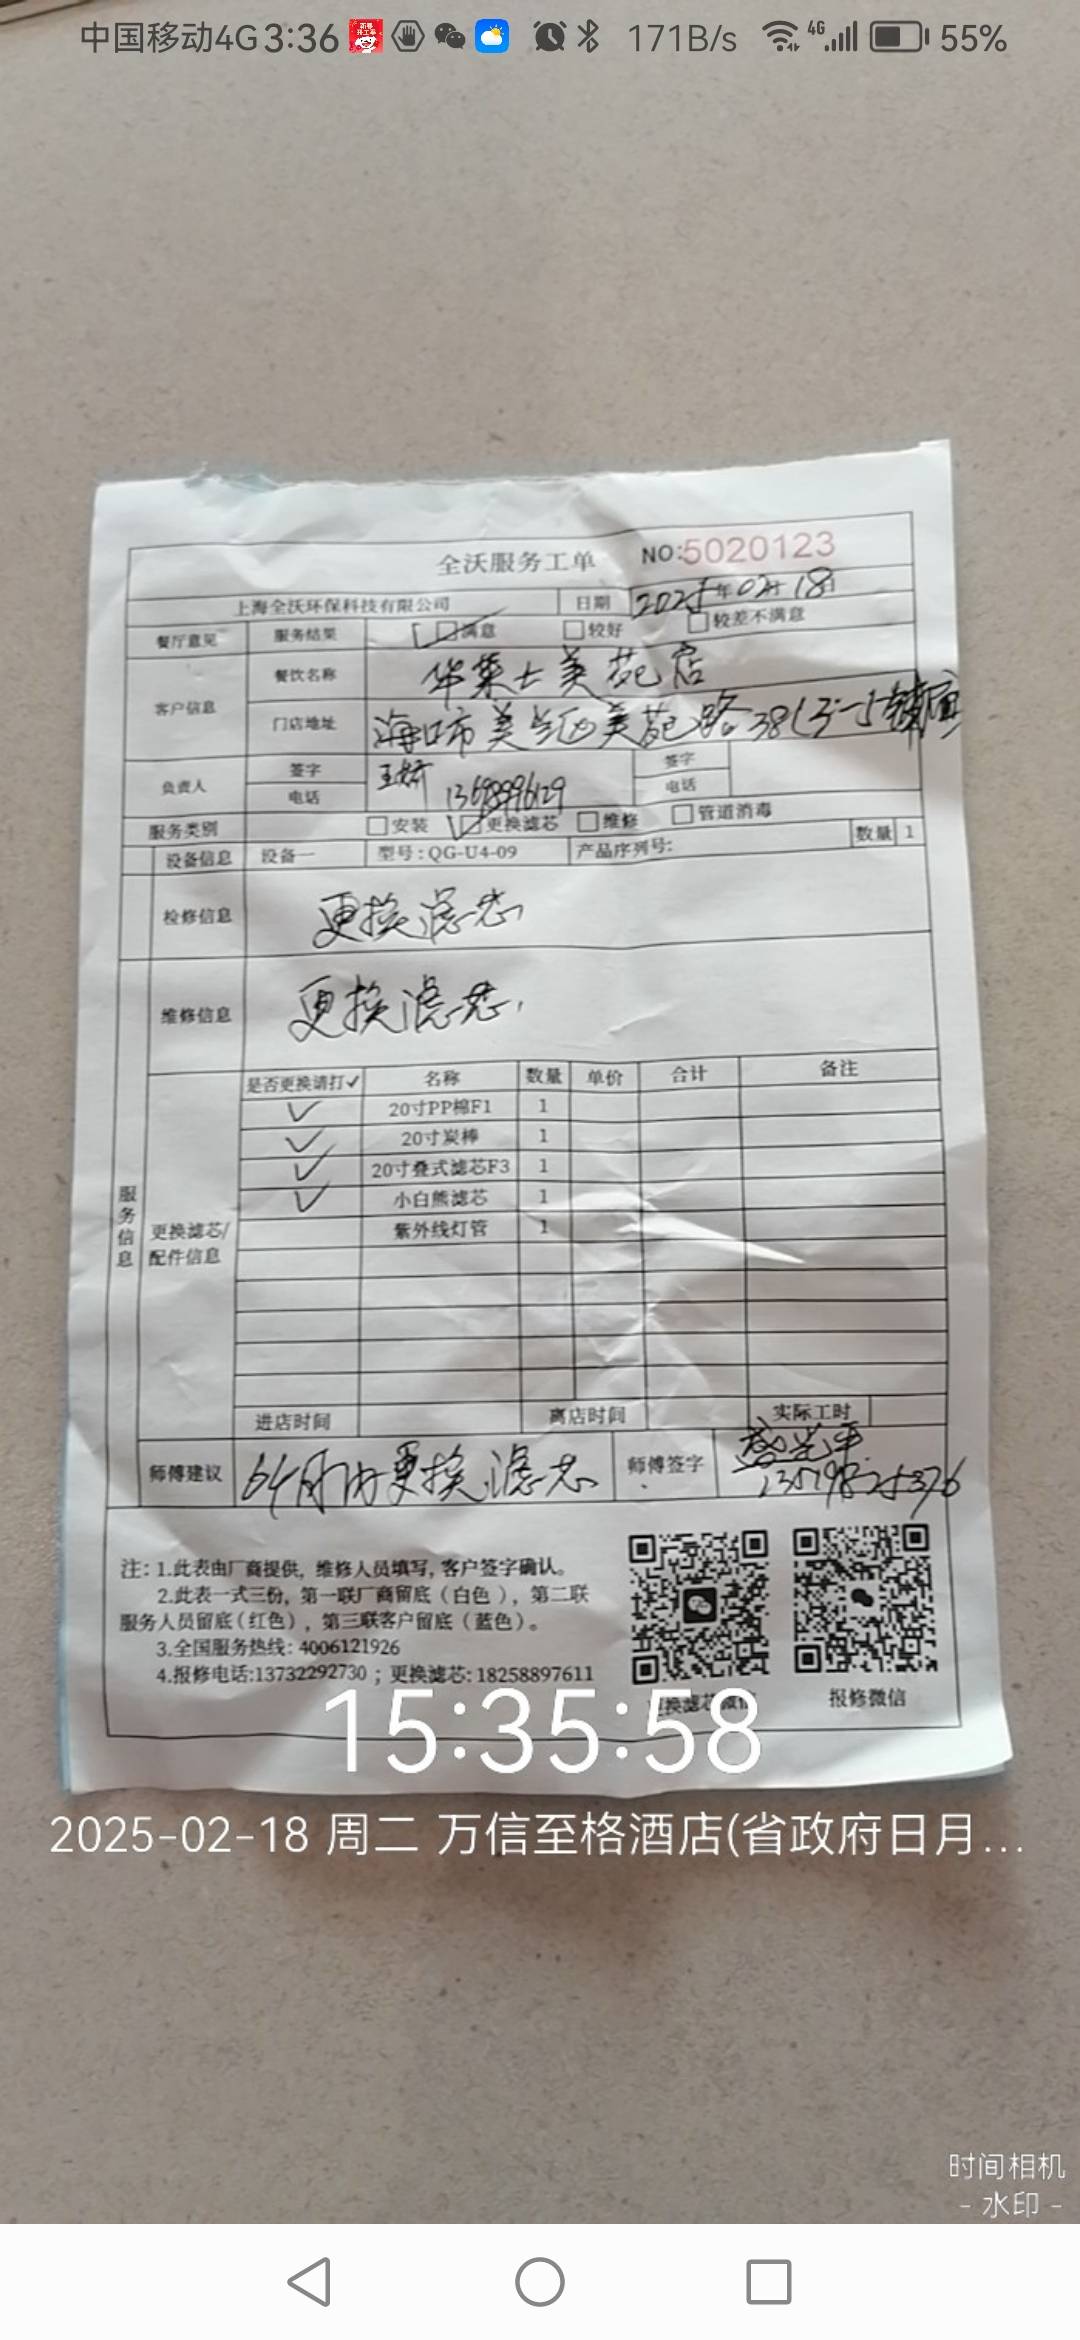 中国移动4G 3:36 171B/s 4G 55%
全沃服务工单 NO:5020123
上海全沃环保科技有限公司 日期 2025年02月18日
餐厅意见 服务结果 满意 较好 较差不满意
客户信息 餐饮名称 华莱士美苑店
门店地址 海口市美兰区美苑路38
负责人 签字 签字
电话 13698996129 电话
服务类别 安装 更换滤芯 维修 管道消毒
设备信息 设备一 型号:QG-U4-09 产品序列号: 数量 1
检修信息 更换滤芯
维修信息 更换滤芯.
服务信息
更换滤芯/配件信息
是否更换请打✓ 名称 数量 单价 合计 备注
✓ 20寸PP棉F1 1
✓ 20寸炭棒 1
✓ 20寸叠式滤芯F3 1
✓ 小白熊滤芯 1
紫外线灯管 1
进店时间 离店时间 实际工时
师傅建议 6个月内更换滤芯 师傅签字
注: 1.此表由厂商提供, 维修人员填写, 客户签字确认。
2.此表一式三份, 第一联厂商留底 (白色), 第二联
服务人员留底 (红色), 第三联客户留底 (蓝色)。
3.全国服务热线: 4006121926
4.报修电话:13732292730 ; 更换滤芯: 18258897611
更换滤芯微信 报修微信
15:35:58
2025-02-18 周二 万信至格酒店(省政府日月...
时间相机
- 水印 -